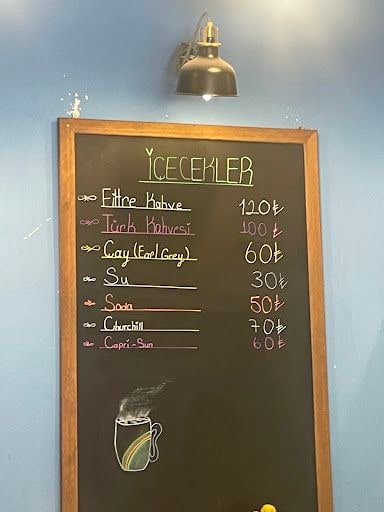 İÇECEKLER
Filtre Kahve 120₺
Türk Kahvesi 100₺
Çay (Earl Grey) 60₺
Su 30₺
Soda 50₺
Churchill 70₺
Capri-Sun 60₺